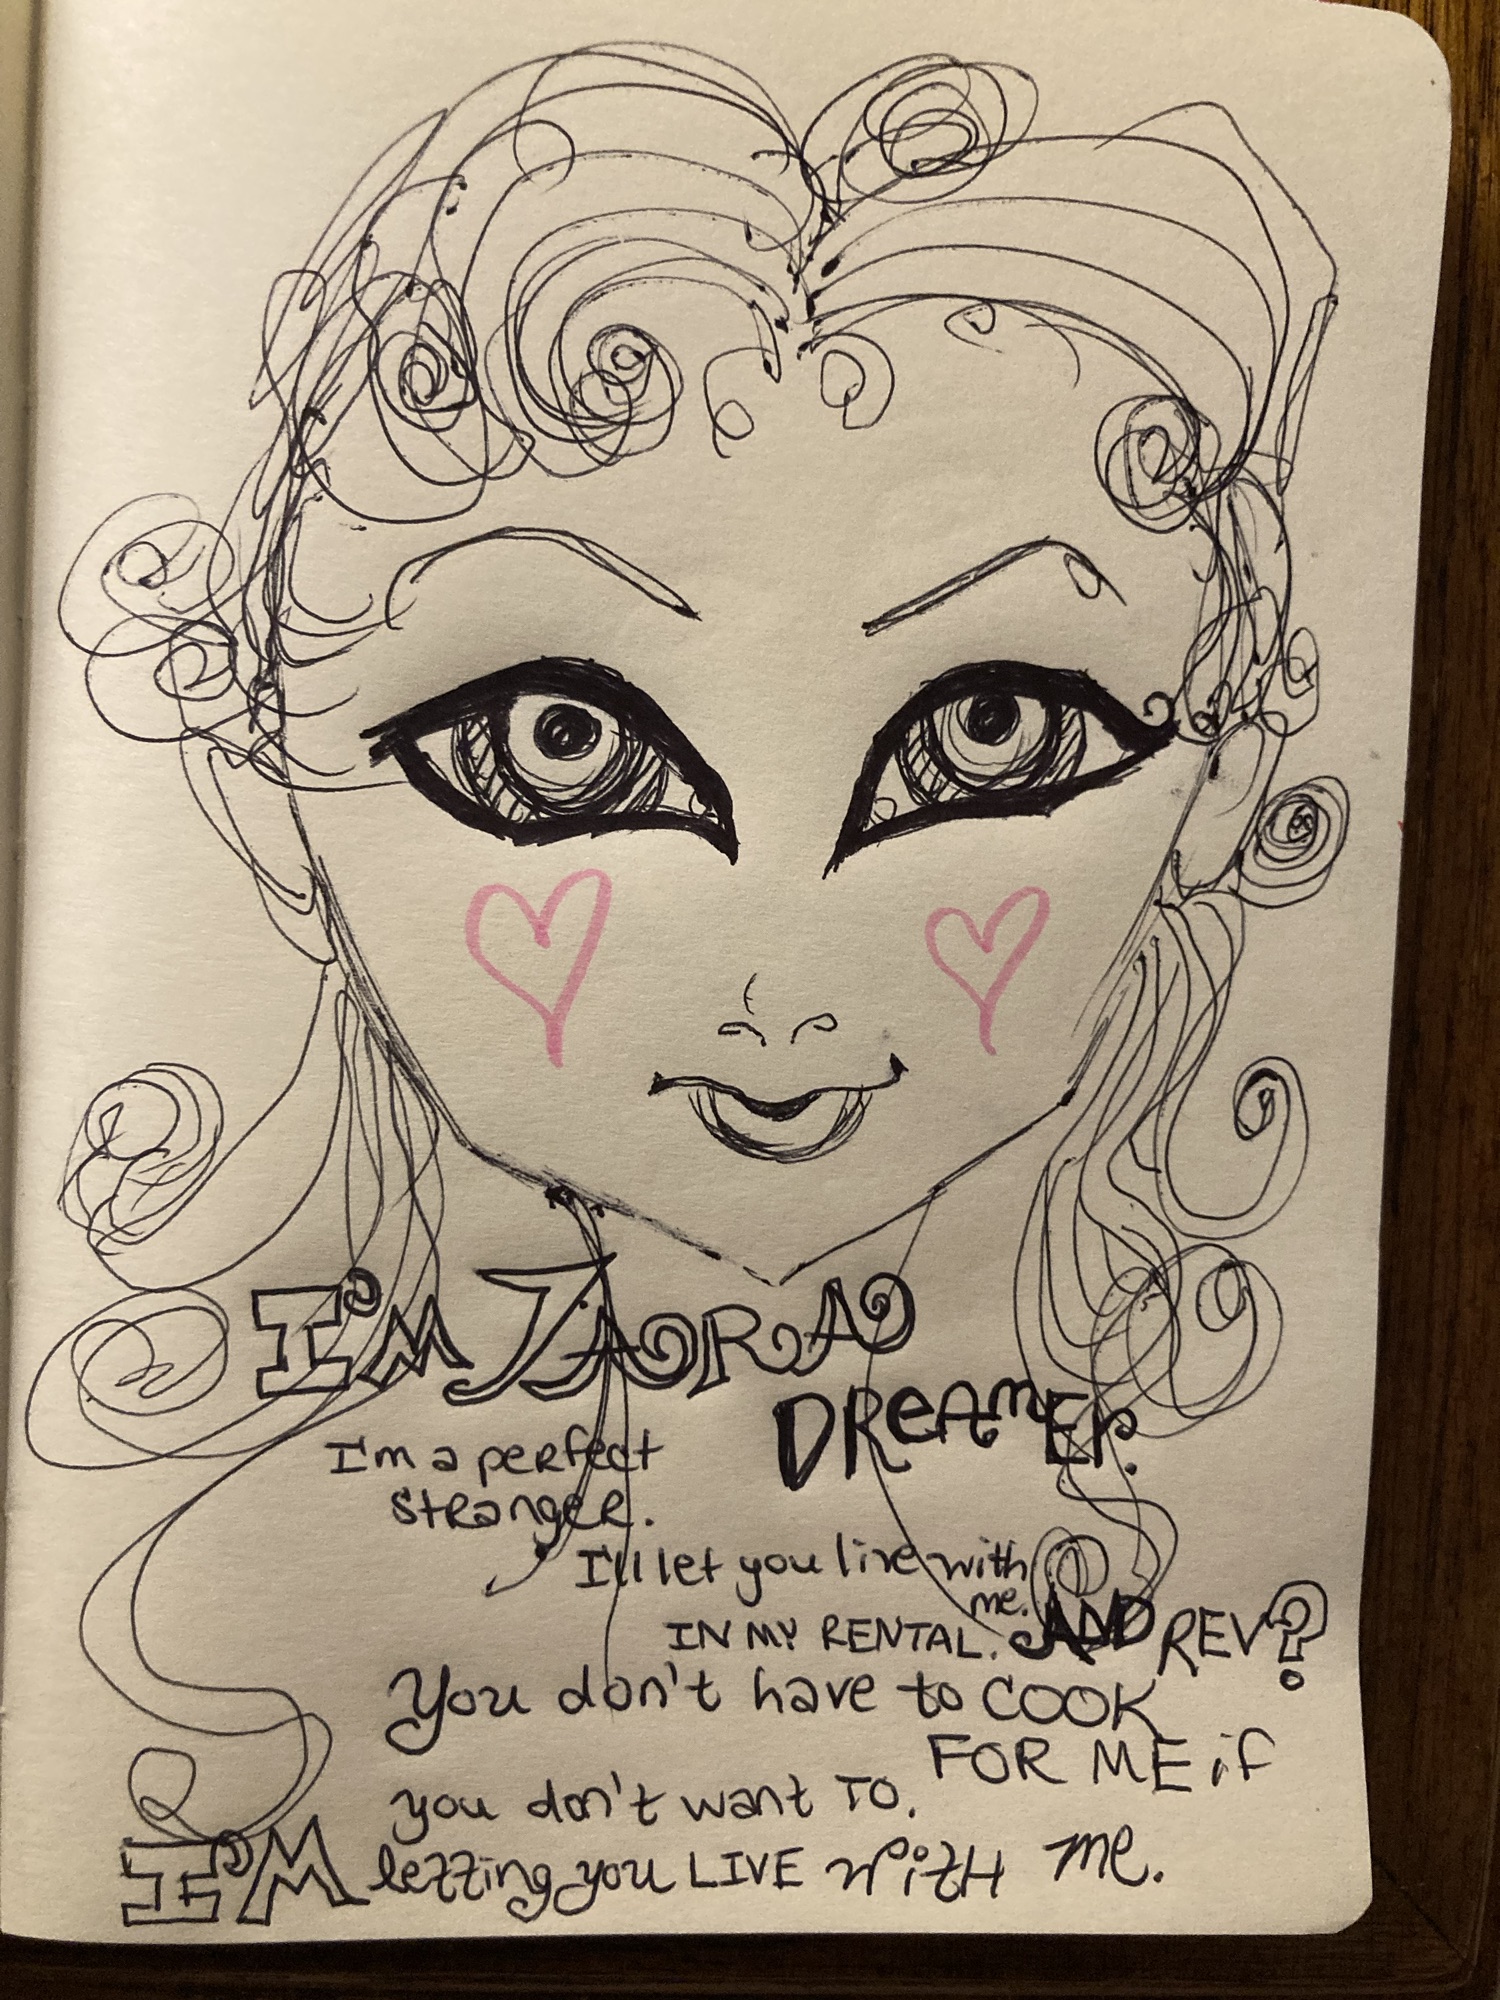 I'M ZARA
DREAMER.
I'm a perfect
stranger.
I'll let you live with
me.
IN MY RENTAL. AND REV?
You don't have to COOK
FOR ME if
you don't want TO.
I'M letting you LIVE WITH me.